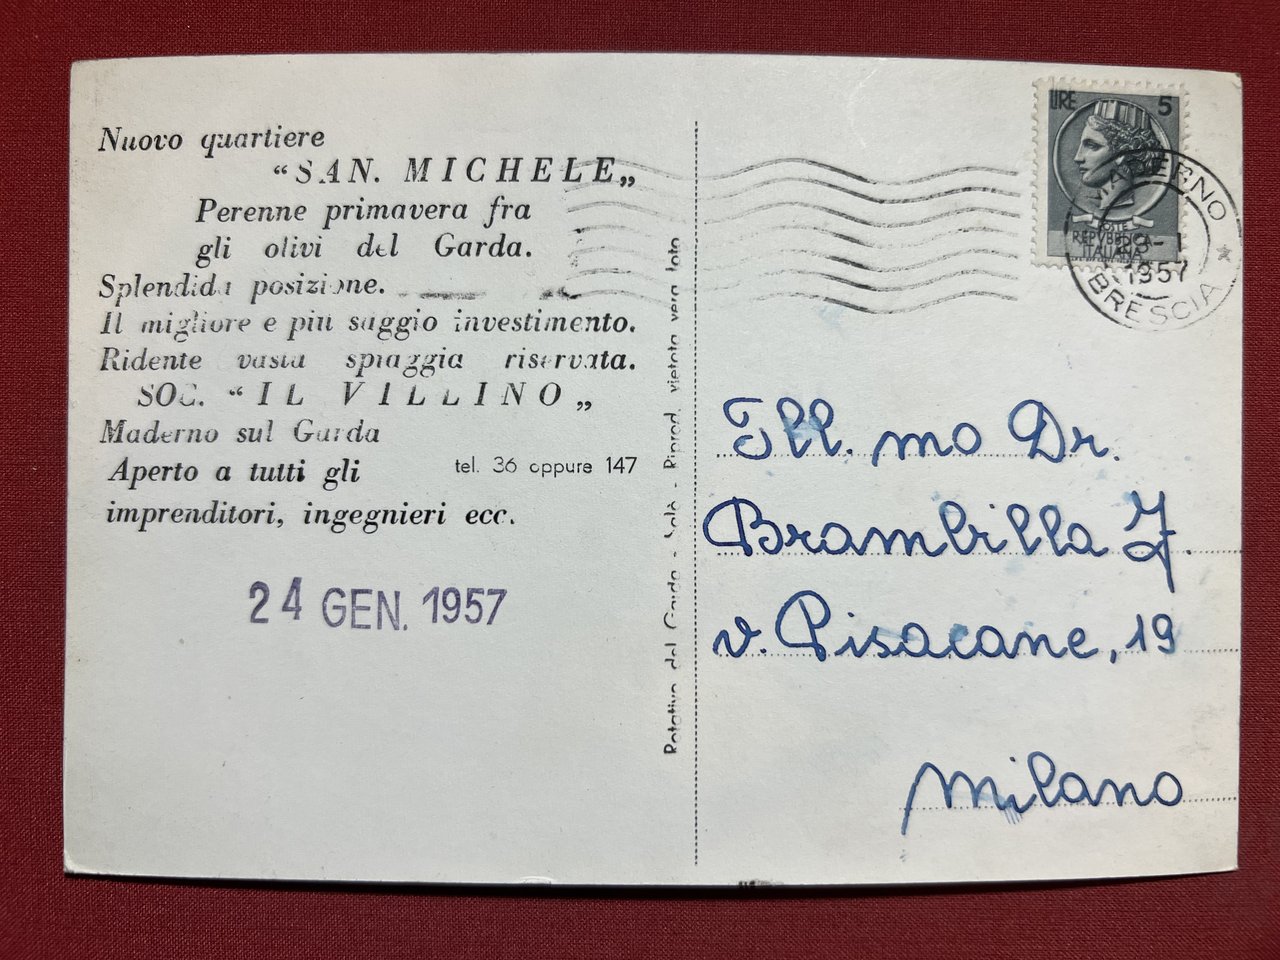 Nuovo quartiere
“SAN. MICHELE„
Perenne primavera fra
gli olivi del Garda.
Splendida posizione.
Il migliore e più saggio investimento.
Ridente vasta spiaggia riservata.
SOC. “IL VILLINO„
Maderno sul Garda
Aperto a tutti gli
tel. 36 oppure 147
imprenditori, ingegnieri ecc.
24 GEN. 1957
Rotativa del Garda - Salò - Riprod. vietata vera foto
LIRE 5
POSTE
REPVBBLICA
ITALIANA
1957
BRESCIA
Ill.mo Dr.
Brambilla J.
v. Pisacane, 19
Milano